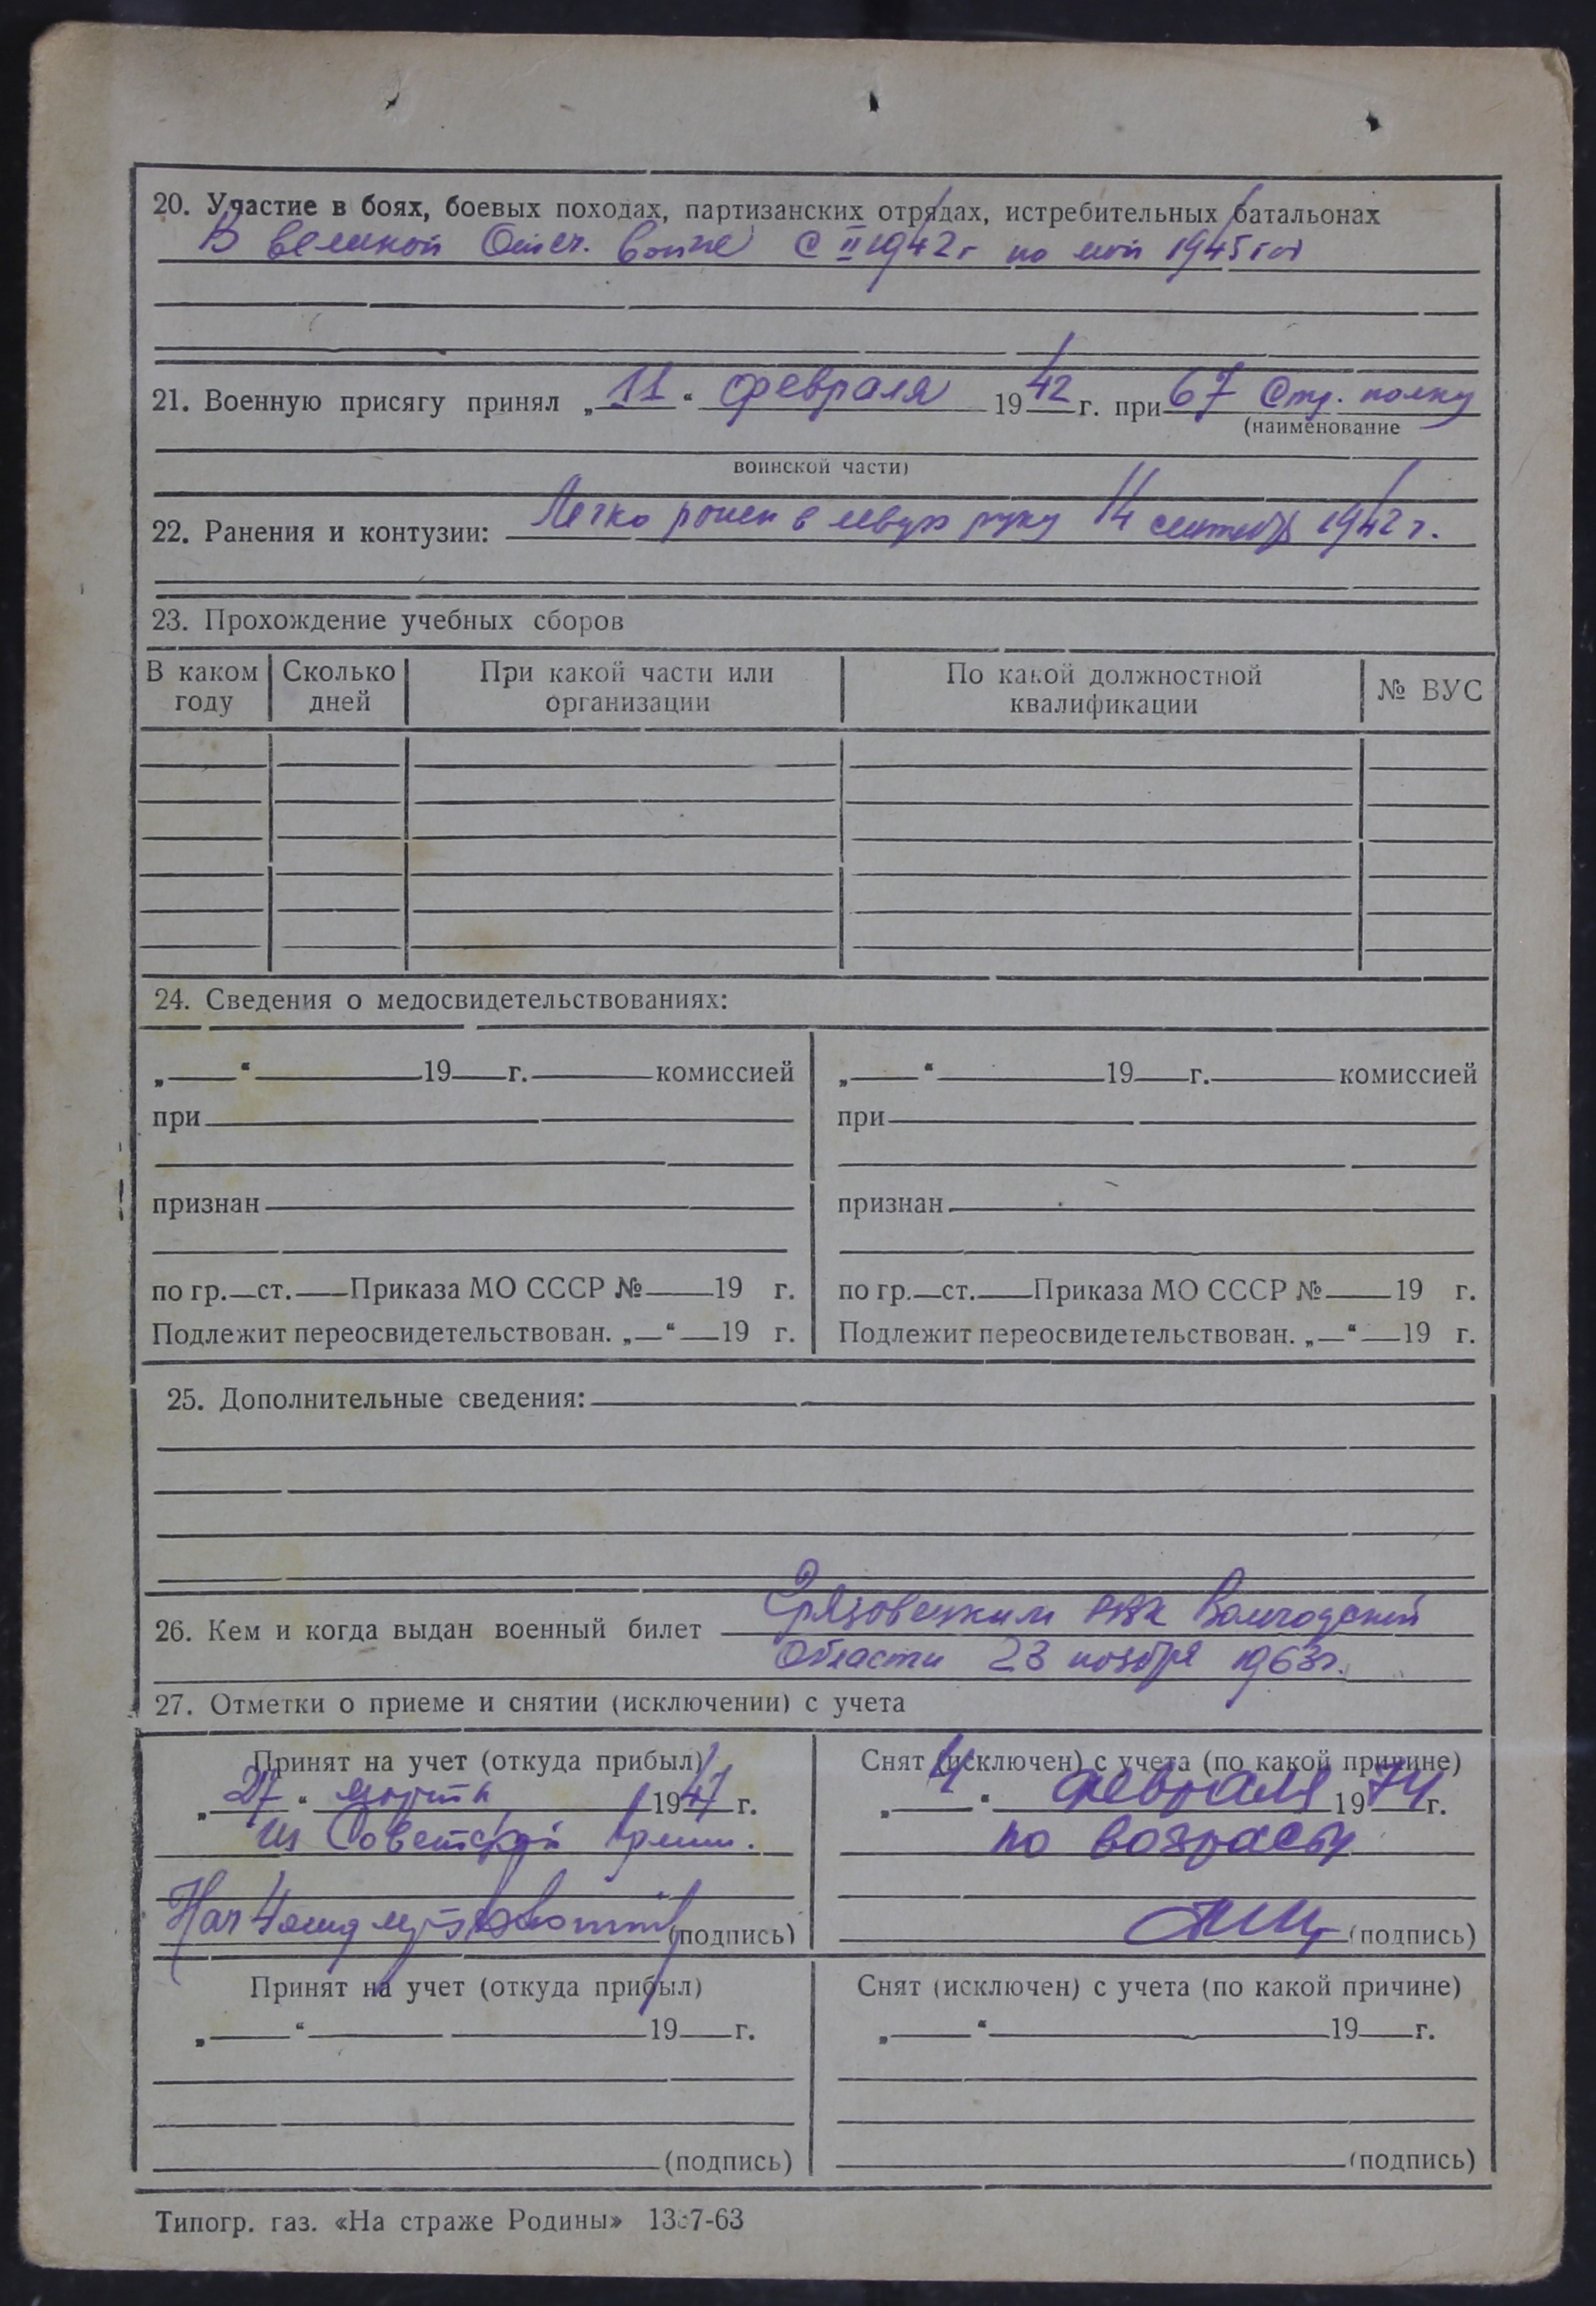 20. Участие в боях, боевых походах, партизанских отрядах, истребительных батальонах
В великой Отеч. войне с II 1942г по май 1945 год
21. Военную присягу принял „11“ февраля 1942 г. при 67 Стр. полку
(наименование
воинской части)
22. Ранения и контузии: Легко ранен в левую руку 14 сентября 1942 г.
23. Прохождение учебных сборов
В каком году Сколько дней При какой части или организации По какой должностной квалификации № ВУС
24. Сведения о медосвидетельствованиях:
„ “ 19 г. комиссией „ “ 19 г. комиссией
при при
признан признан
по гр. ст. Приказа МО СССР № 19 г. по гр. ст. Приказа МО СССР № 19 г.
Подлежит переосвидетельствован. „ “ 19 г. Подлежит переосвидетельствован. „ “ 19 г.
25. Дополнительные сведения:
26. Кем и когда выдан военный билет Грязовецким РВК Вологодской
области 23 ноября 1963г.
27. Отметки о приеме и снятии (исключении) с учета
Принят на учет (откуда прибыл) Снят (исключен) с учета (по какой причине)
„27“ марта 1947 г. „4“ февраля 1974 г.
из Советской Армии. по возрасту
Нач 4 (подпись) (подпись)
Принят на учет (откуда прибыл) Снят (исключен) с учета (по какой причине)
„ “ 19 г. „ “ 19 г.
(подпись) (подпись)
Типогр. газ. «На страже Родины»